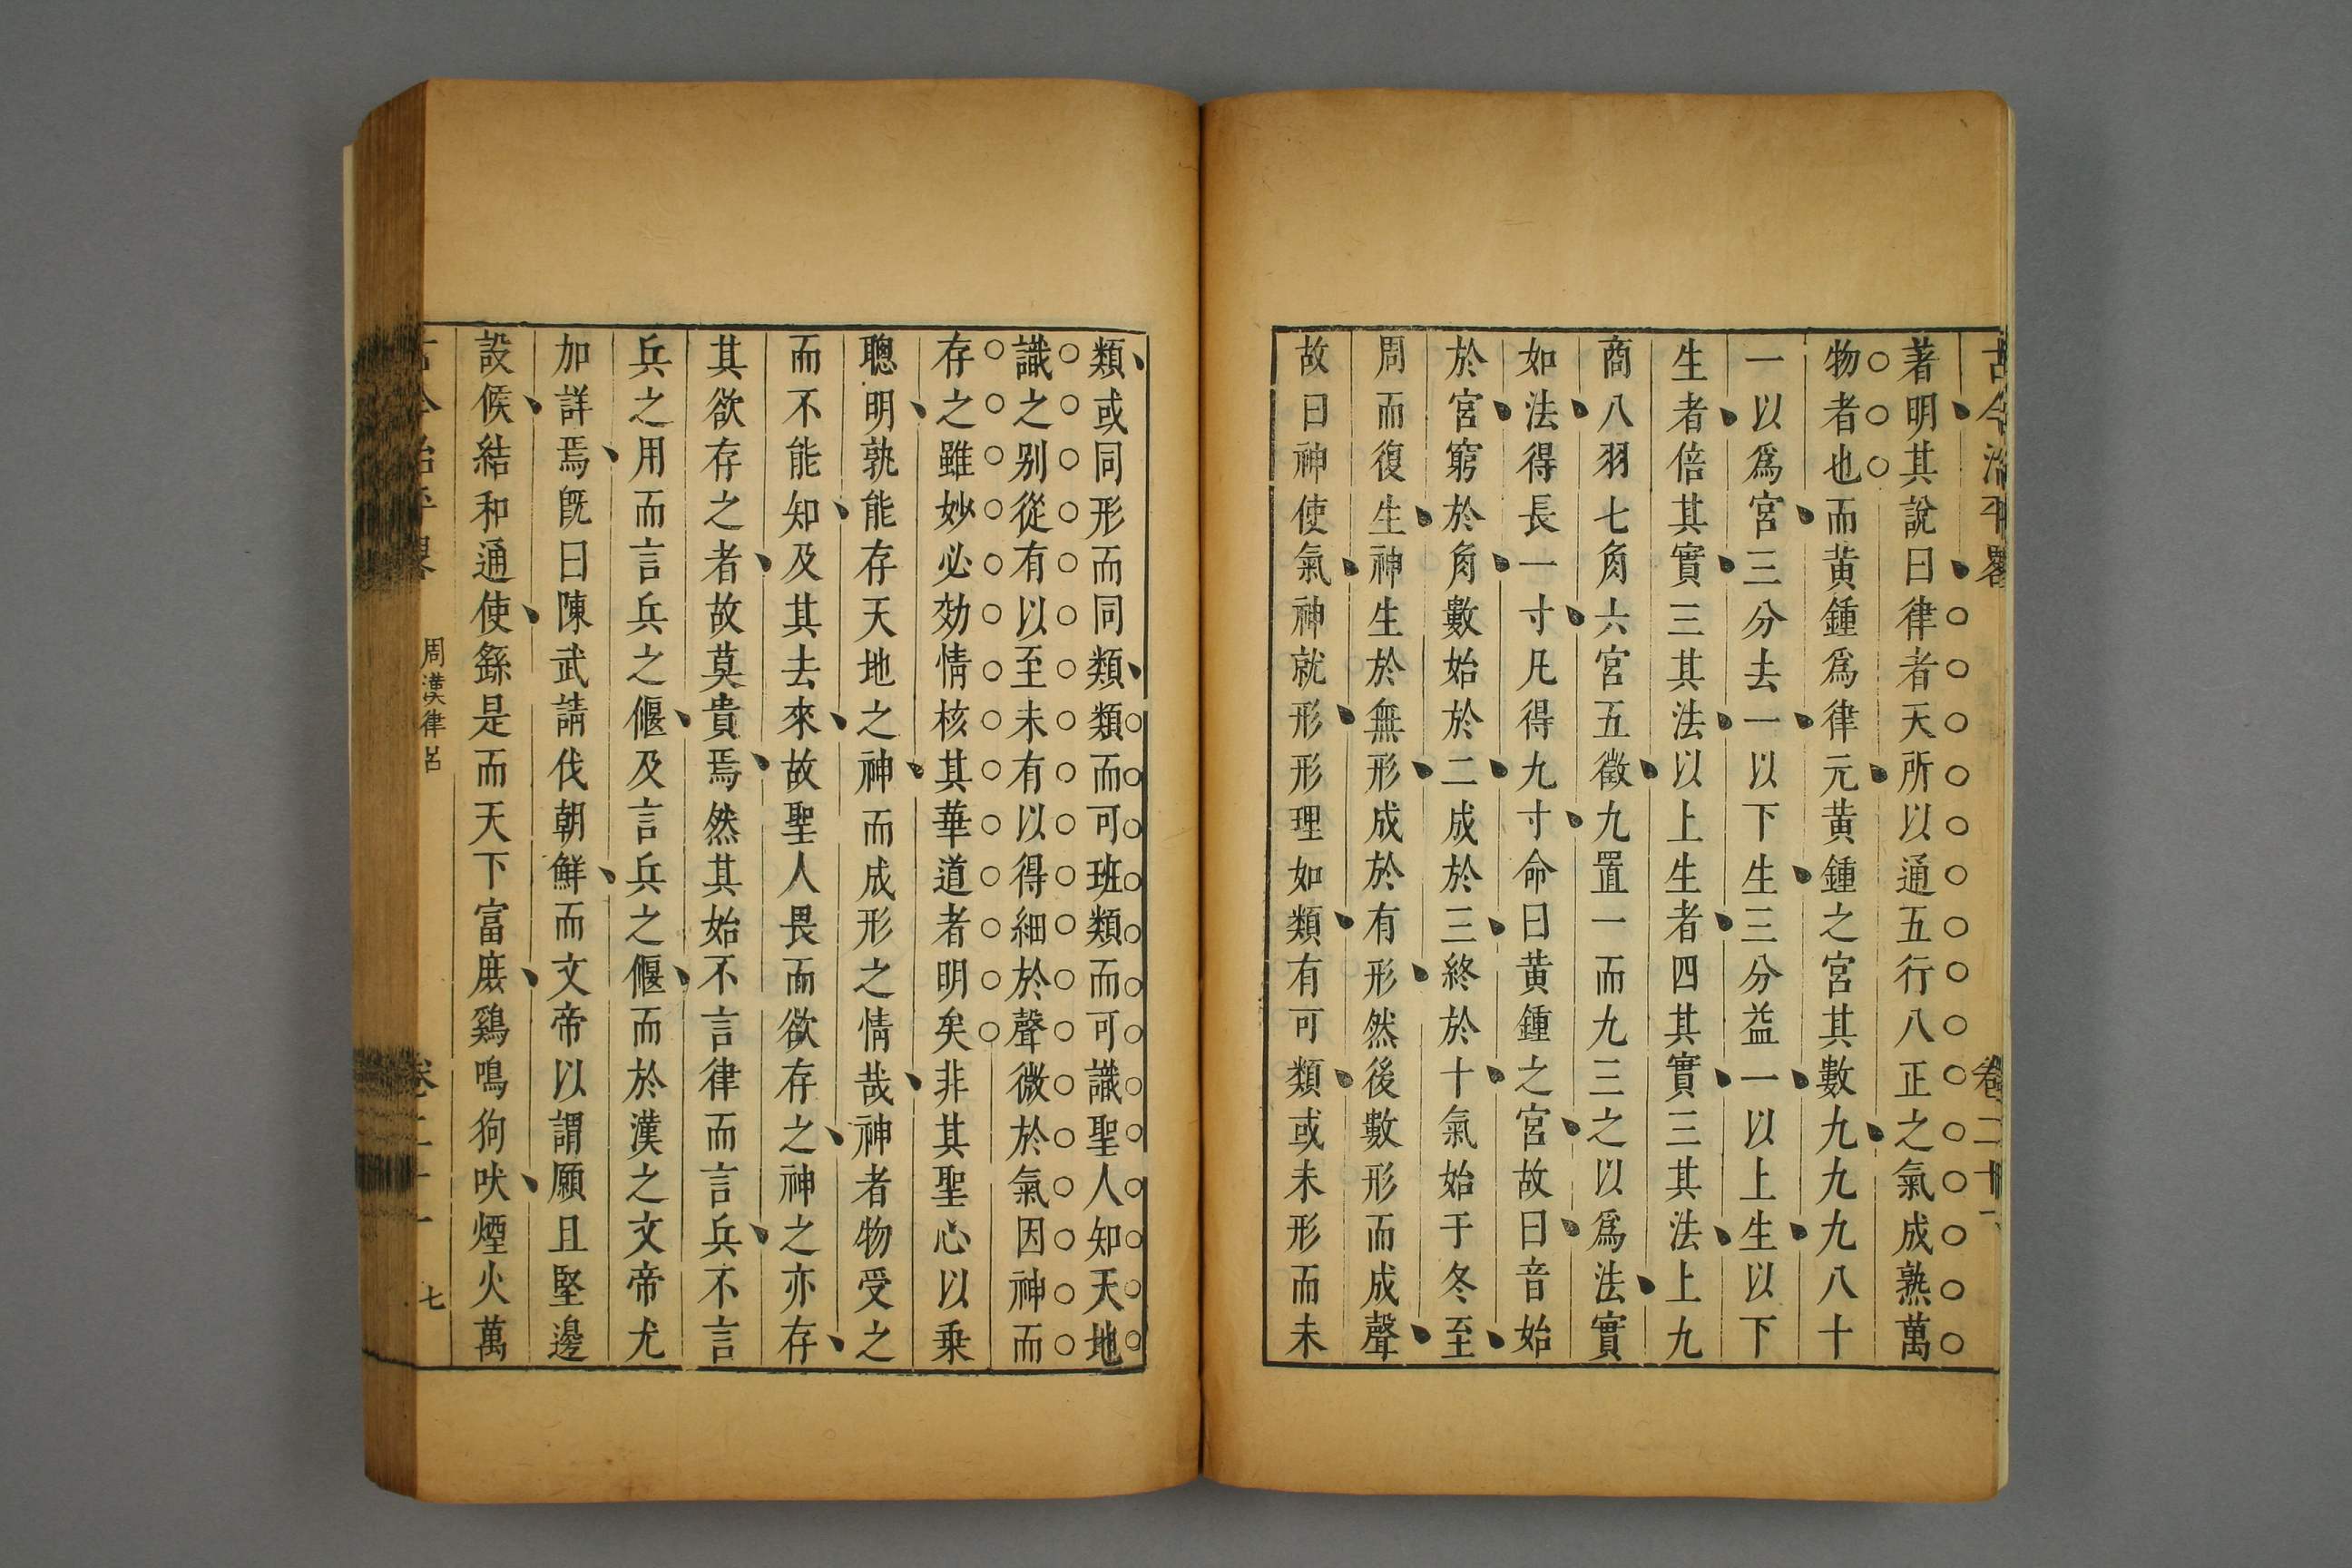 古今治平畧 卷二十一
著明其說曰律者天所以通五行八正之氣成熟萬
物者也而黄鍾爲律元黄鍾之宮其數九九九八十
一以爲宮三分去一以下生三分益一以上生以下
生者倍其實三其法以上生者四其實三其法上九
商八羽七角六宮五徵九置一而九三之以爲法實
如法得長一寸凡得九寸命曰黄鍾之宮故曰音始
於宮窮於角數始於二成於三終於十氣始于冬至
周而復生神生於無形成於有形然後數形而成聲
故曰神使氣神就形形理如類有可類或未形而未
類或同形而同類類而可班類而可識聖人知天地
識之别從有以至未有以得細於聲微於氣因神而
存之雖妙必効情核其華道者明矣非其聖心以乗
聰明孰能存天地之神而成形之情哉神者物受之
而不能知及其去來故聖人畏而欲存之神之亦存
其欲存之者故莫貴焉然其始不言律而言兵不言
兵之用而言兵之偃及言兵之偃而於漢之文帝尤
加詳焉旣曰陳武請伐朝鮮而文帝以謂願且堅邊
設候結和通使繇是而天下富庶鷄鳴狗吠煙火萬
古今治平畧 周漢律呂 卷二十一 七